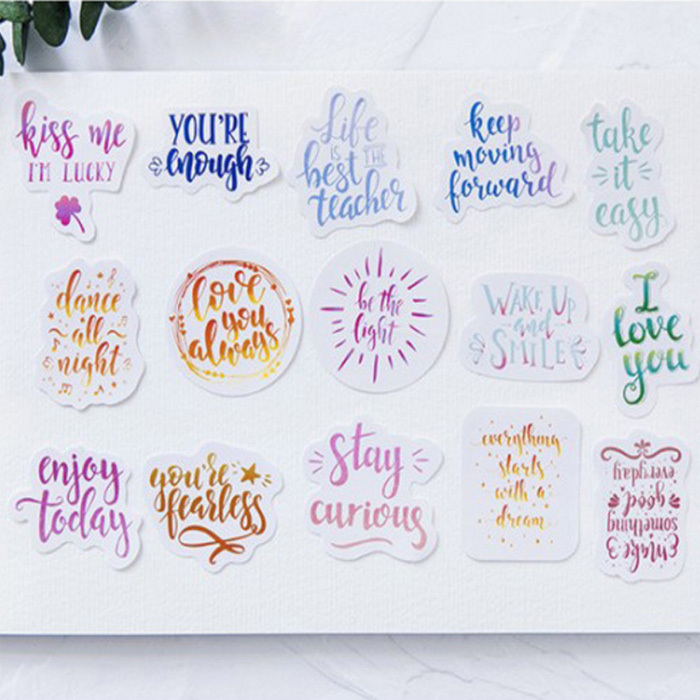 kiss me
I'M LUCKY
YOU'RE
enough
Life
IS THE
best
teacher
keep
moving
forward
take
it
easy
dance
all
night
love
you
always
be the
light
WAKE UP
and
SMILE
I
love
you
enjoy
today
you're
fearless
stay
curious
everything
starts
with a
dream
make
something
good
everyday